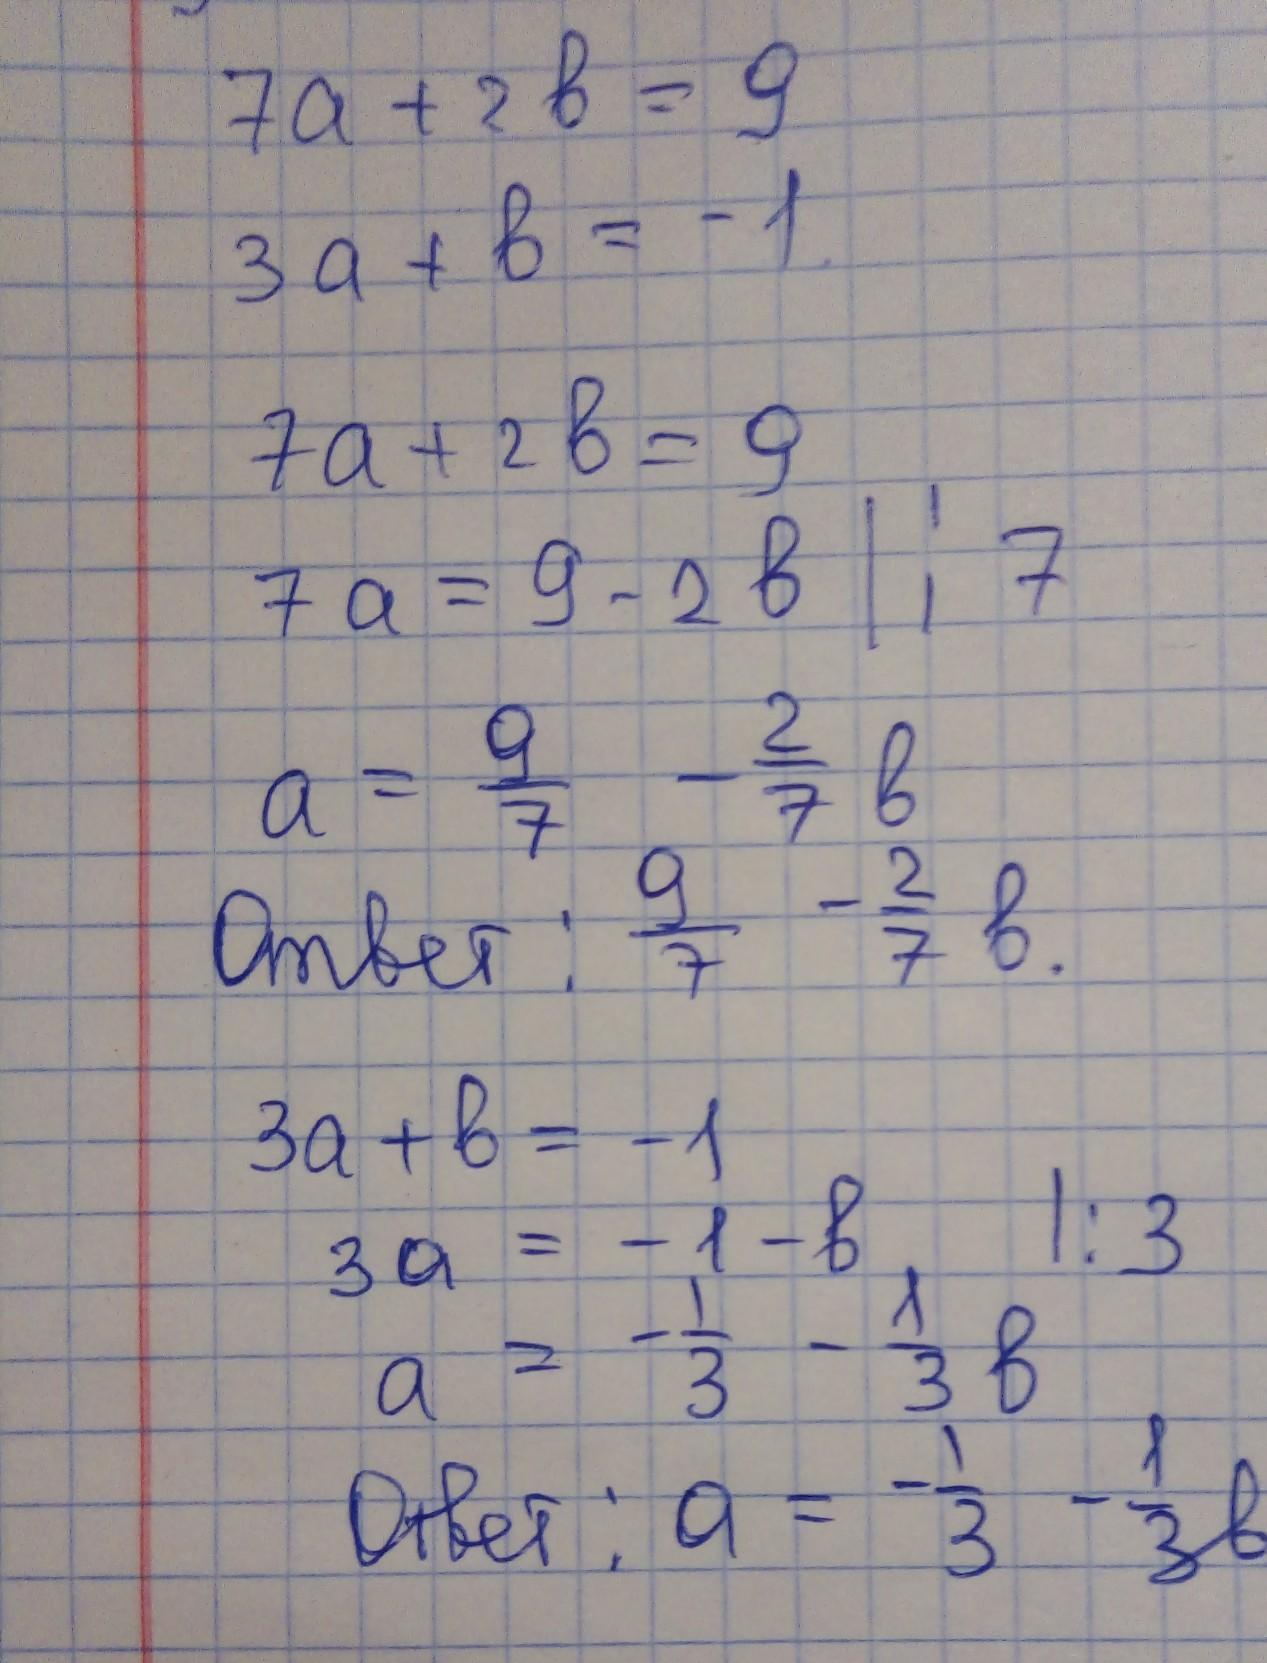 7a + 2в = 9
3a + в = -1.
7a + 2в = 9
7a = 9 - 2в | : 7
a = 9/7 - 2/7 в
Ответ: 9/7 - 2/7 в.
3a + в = -1
3a = -1 - в |: 3
a = -1/3 - 1/3 в
Ответ: a = -1/3 - 1/3 в